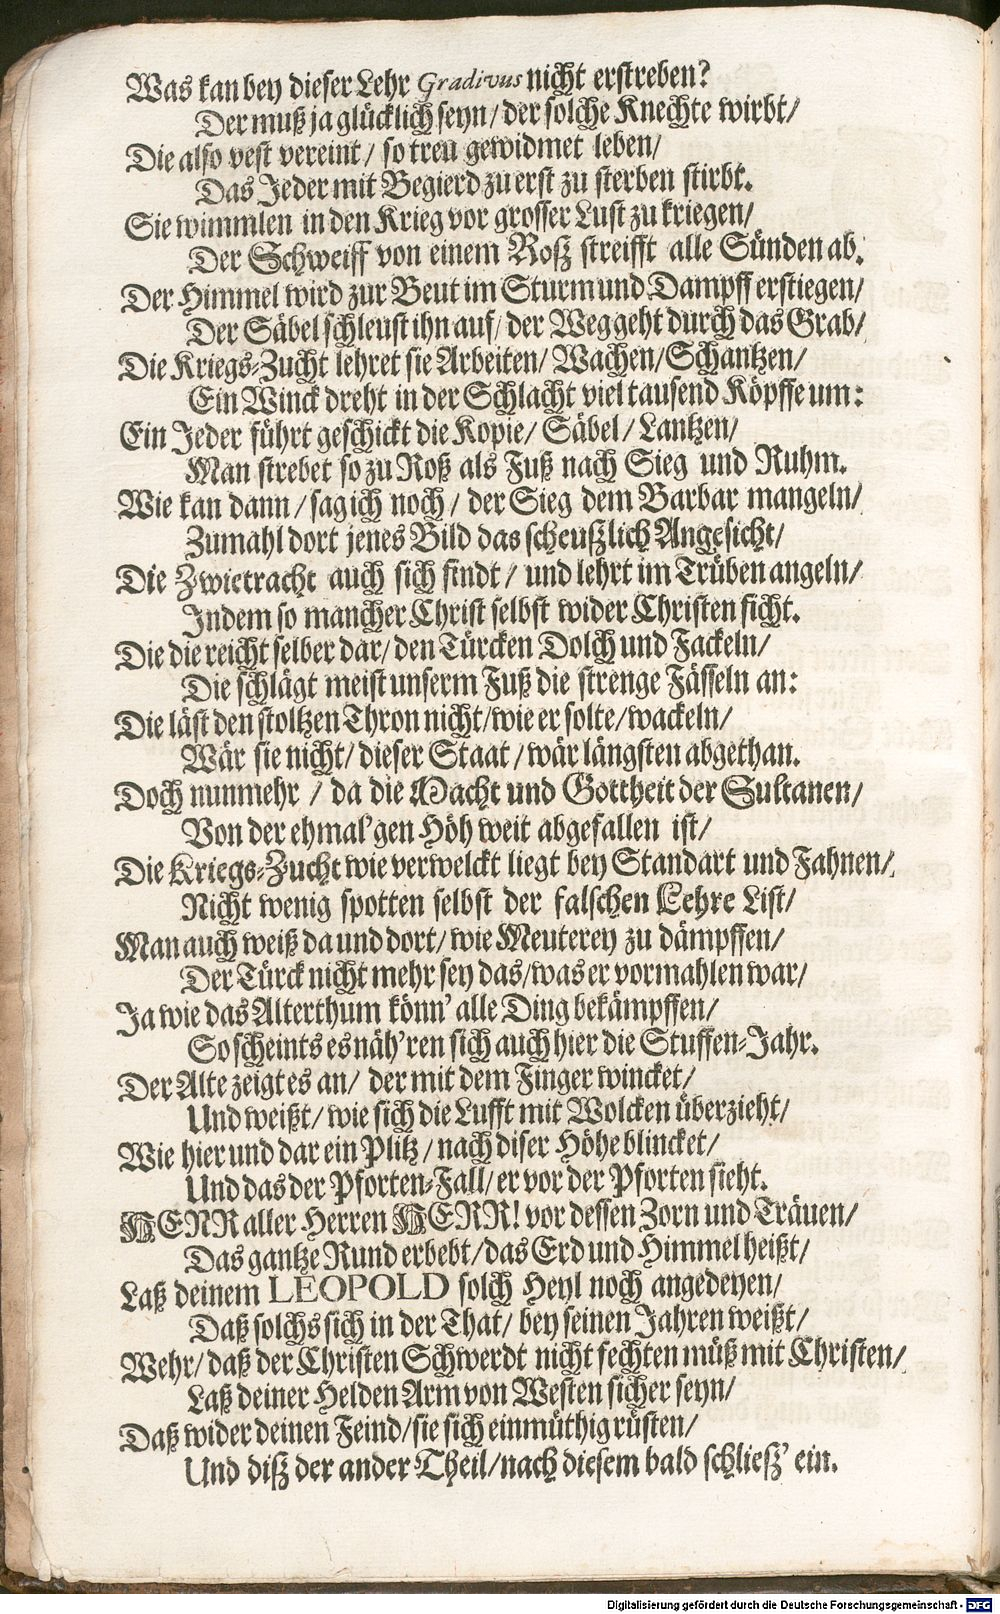 Was kan bey dieser Lehr Gradivus nicht erstreben?
Der muß ja glücklich seyn/ der solche Knechte wirbt/
Die also vest vereint/ so treu gewidmet leben/
Das Jeder mit Begierd zu erst zu sterben stirbt.
Sie wimmlen in den Krieg vor grosser Lust zu kriegen/
Der Schweiff von einem Roß streifft alle Sünden ab.
Der Himmel wird zur Beut im Sturm und Dampff erstiegen/
Der Säbel schleust ihn auf/ der Weg geht durch das Grab/
Die Kriegs-Zucht lehret sie Arbeiten/ Wachen/ Schantzen/
Ein Winck dreht in der Schlacht viel tausend Köpffe um:
Ein Jeder führt geschickt die Kopie/ Säbel/ Lantzen/
Man strebet so zu Roß als Fuß nach Sieg und Ruhm.
Wie kan dann/ sag ich noch/ der Sieg dem Barbar mangeln/
Zumahl dort jenes Bild das scheußlich Angesicht/
Die Zwietracht auch sich findt/ und lehrt im Trüben angeln/
Indem so mancher Christ selbst wider Christen ficht.
Die die reicht selber dar/ den Türcken Dolch und Fackeln/
Die schlägt meist unserm Fuß die strenge Fässeln an:
Die läst den stoltzen Thron nicht/ wie er solte/ wackeln/
Wär sie nicht/ dieser Staat/ wär längsten abgethan.
Doch nunmehr/ da die Macht und Gottheit der Sultanen/
Von der ehmal'gen Höh weit abgefallen ist/
Die Kriegs-Zucht wie verwelckt liegt bey Standart und Fahnen/
Nicht wenig spotten selbst der falschen Lehre List/
Man auch weiß da und dort/ wie Meuterey zu dämpffen/
Der Türck nicht mehr sey das/ was er vormahlen war/
Ja wie das Alterthum könn' alle Ding bekämpffen/
So scheints es näh'ren sich auch hier die Stuffen-Jahr.
Der Alte zeigt es an/ der mit dem Finger wincket/
Und weißt/ wie sich die Lufft mit Wolcken überzieht/
Wie hier und dar ein Plitz/ nach diser Höhe blincket/
Und das der Pforten-Fall/ er vor der Pforten sieht.
HERR aller Herren HERR! vor dessen Zorn und Träuen/
Das gantze Rund erbebt/ das Erd und Himmel heißt/
Laß deinem LEOPOLD solch Heyl noch angedeyen/
Daß solchs sich in der That/ bey seinen Jahren weißt/
Wehr/ daß der Christen Schwerdt nicht fechten müß mit Christen/
Laß deiner Helden Arm von Westen sicher seyn/
Daß wider deinen Feind/ sie sich einmüthig rüsten/
Und diß der ander Theil/ nach diesem bald schließ' ein.
Digitalisierung gefördert durch die Deutsche Forschungsgemeinschaft - DFG